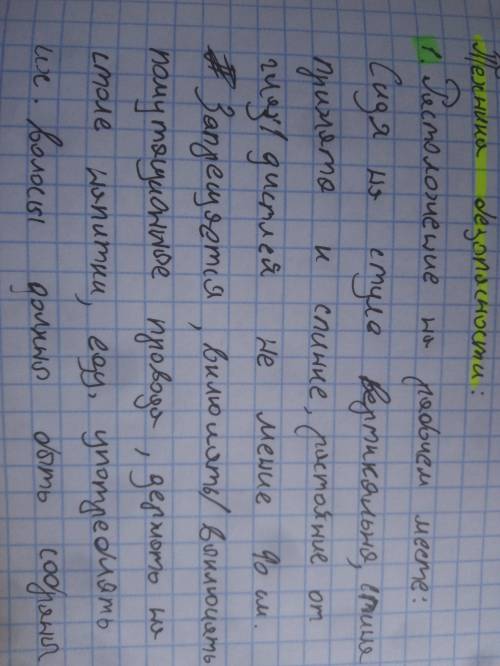 Техника безопасности:
1. Расположение на рабочем месте:
Сидя на стуле вертикально, спина
прижата к спинке, растояние от
глаз/дисплей не менше 90 см.
# Запрещается, включать/выключать
комутационные провода, держать на
столе напитки, еду, употреблять
их. Волосы должны быть собраны